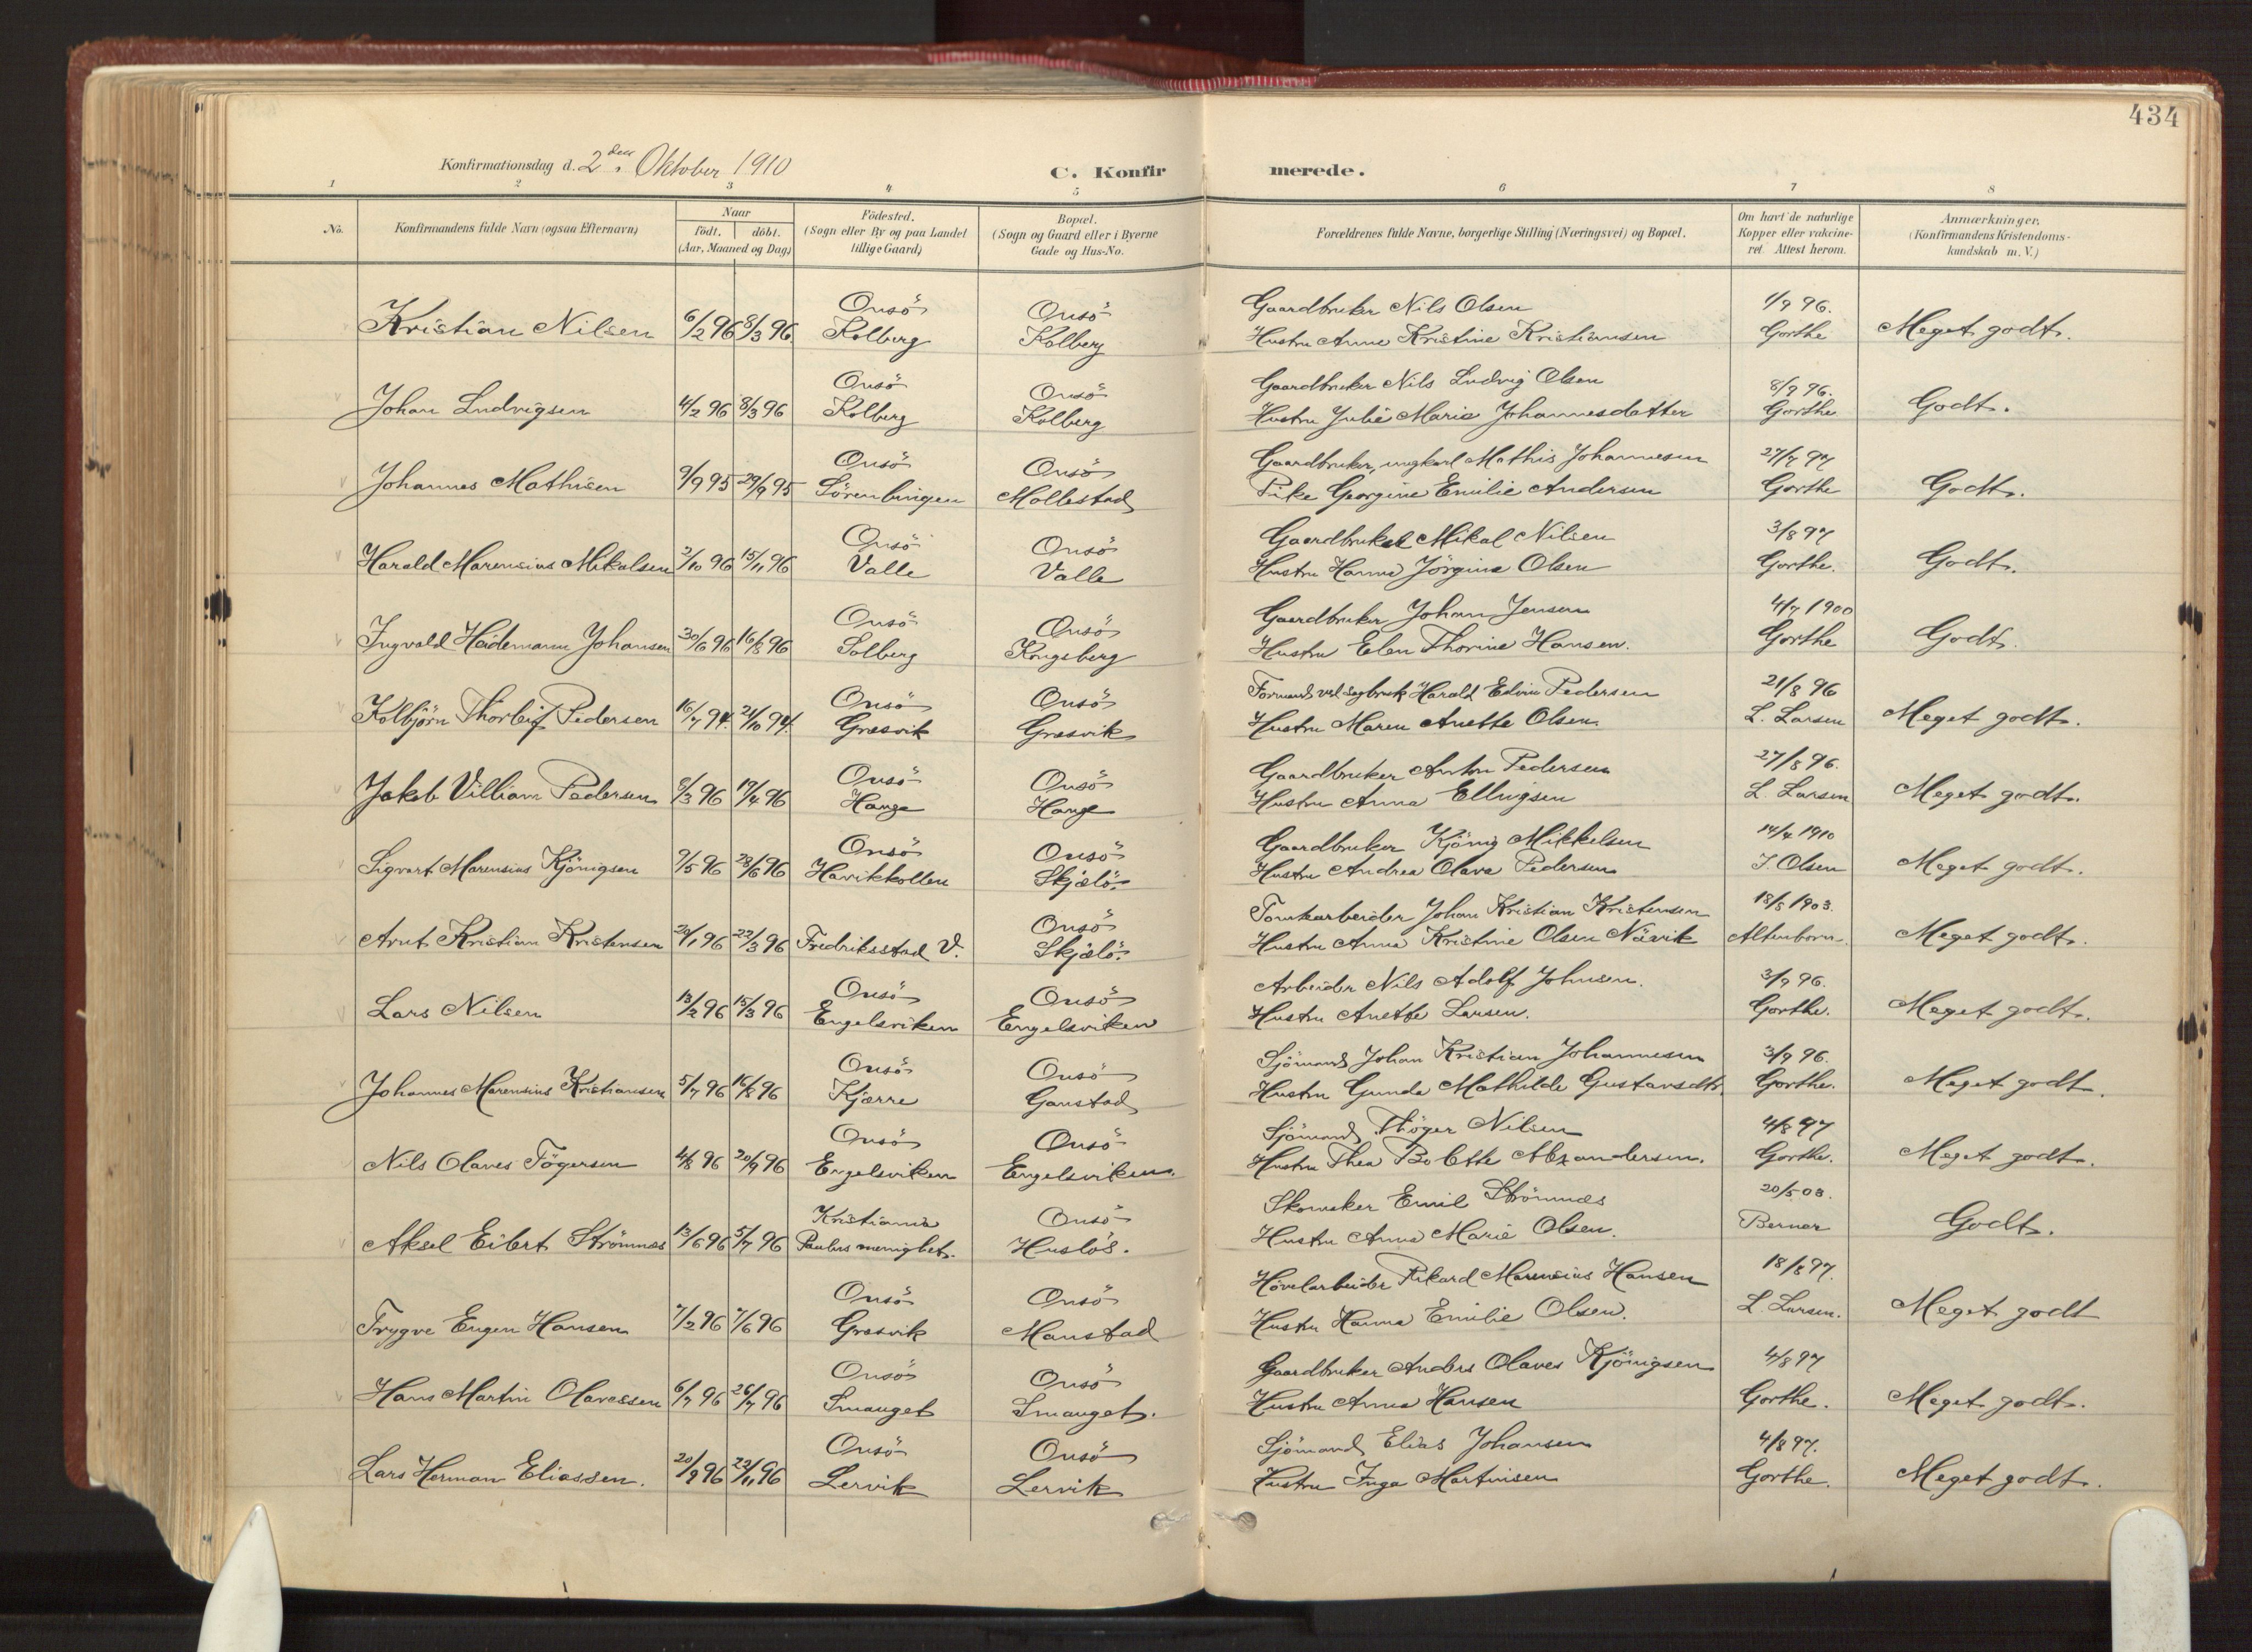 434
Konfirmationsdag d. 2den Oktober 1910
C. Konfirmerede.
1 2 3 4 5 6 7 8
No.
Konfirmandens fulde Navn (ogsaa Efternavn)
Naar
födt. döbt.
(Aar, Maaned og Dag)
Födested.
(Sogn eller By og paa Landet
tillige Gaard)
Bopæl.
(Sogn og Gaard eller i Byerne
Gade og Hus-No.
Forældrenes fulde Navne, borgerlige Stilling (Næringsvei) og Bopæl.
Om havt de naturlige
Kopper eller vakcine-
ret Attest herom.
Anmærkninger.
(Konfirmandens Kristendoms-
kundskab m. V.)
Onsö Onsö Gaardbruker Nils Olsen 1/9 96.
Kristian Nilsen 6/2 96 8/3 96. Kolberg Kolberg Hustru Anne Kristine Kristiansen Gorthe Meget godt.
Onsö Onsö Gaardbruker Nils Ludvig Olsen 8/9 96.
Johan Ludvigsen 4/2 96 8/3 96 Kolberg Kolberg Hustru Julie Marie Johannesdatter Gorthe Godt.
Onsö Onsö Gaardbruker, ungkarl Mathis Johannesen 27/7 97
Johannes Mathisen 9/9 95 29/9 95 Sörenbingen Mollestad Pike Georgine Emilie Andersen Gorthe Godt.
Onsö Onsö Gaardbruker Mikal Nilsen 3/8 97
Harald Marensius Mikalsen 2/10 96 15/11 96 Valle Valle Hustru Hanna Jörgine Olsen Gorthe. Godt.
Onsö Onsö Gaardbruker Johan Jensen 4/7 1900
Ingvald Heidemann Johansen 30/6 96 16/8 96 Solberg Kongsberg Hustru Elen Thorine Hansen. Gorthe Godt.
Onsö Onsö Formand ved sagbruk Harald Edvin Pedersen 21/8 96
Kolbjörn Thorleif Pedersen 16/7 94. 21/10 94. Græsvik Græsvik Hustru Maren Anette Olsen L. Larsen Meget godt.
Onsö Onsö Gaardbruker Anton Pedersen 27/8 96.
Jakob Villiam Pedersen 8/3 96 19/4 96 Hauge Hauge Hustru Anna Ellingsen L. Larsen Meget godt.
Onsö Onsö Gaardbruker Kjönig Mikkelsen 14/4 1910
Sigvart Marensius Kjönigsen 9/5 96 28/6 96 Havikkollen Skjælö. Hustru Andrea Olava Pedersen I Olsen Meget godt.
Onsö Tomtearbeider Johan Kristian Kristensen 18/8 1903.
Arnt Kristian Kristensen 20/1 96 22/3 96 Fredriksstad V. Skjælö. Hustru Anna Kristine Olsen Nävik Altenborn. Meget godt.
Onsö Onsö Arbeider Nils Adolf Johnsen. 3/9 96.
Lars Nilsen 13/2 96 15/3 96 Engelsviken Engelsviken Hustru Anette Larsen. Gorthe. Meget godt.
Onsö Onsö Sjömand Johan Kristian Johannesen 3/9 96.
Johannes Marensius Kristiansen 5/7 96 16/8 96 Kjærre Gaustad Hustru Gunda Mathilde Gustavsdtr. Gorthe. Meget godt.
Onsö Onsö Sjömand Thöger Nilsen 4/8 97
Nils Olaves Tögersen 4/8 96 20/9 96 Engelsviken Engelsviken. Hustru Thea Bolette Alexandersen. Gorthe. Meget godt.
Kristiania Onsö Skomaker Emil Strömnæs 20/5 03.
Aksel Eibert Strömnæs 13/6 96 5/7 96 Paulus menighet. Huslös. Hustru Anna Marie Olsen. Berner Godt.
Onsö Onsö Hövelarbeider Rikard Marensius Hansen 18/8 97.
Trygve Eugen Hansen 7/2 96 7/6 96 Græsvik Manstad Hustru Hanna Emilie Olsen. L. Larsen. Meget godt
Onsö Onsö Gaardbruker Anders Olaves Kjönigsen 4/8 97
Hans Martin Olavessen 6/7 96 26/7 96 Smauget Smauget. Hustru Anna Hansen Gorthe. Meget godt.
Onsö Onsö Sjömand Elias Johansen 4/8 97.
Lars Herman Eliassen. 20/9 96 22/11 96 Lervik Lervik Hustru Inga Martinsen Gorthe. Meget godt.